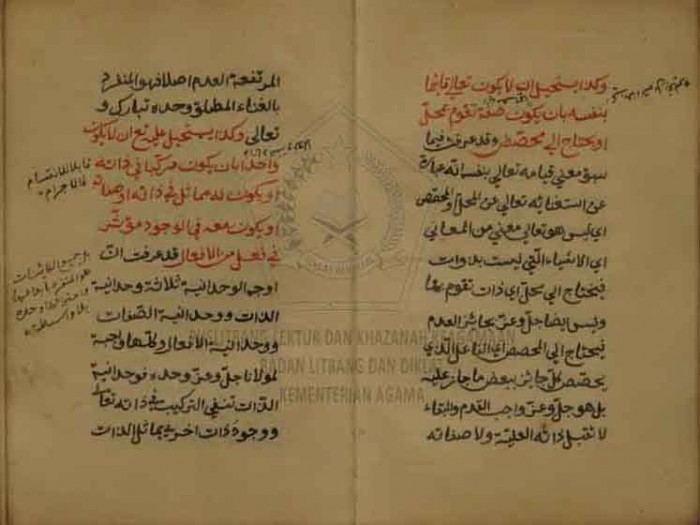 وكذا يستحيل عليه ان لا يكون تعالى قائما
بنفسه بان يكون صفة تقوم بمحل
او يحتاج الى مخصص وقد عرفت فيما
سبق معنى قيامه تعالى بنفسه انه عبارة
عن استغنائه تعالى عن المحل والمخصص
اي ليس هو تعالى معنى من المعاني
اي الاشياء التي ليست بذوات
فيحتاج الى محل اي ذات تقوم بها
وليس ايضا جل وعز بجائز العدم
فيحتاج الى المخصص اي الفاعل الذي
يخصص كل جائز ببعض ما جاز عليه
بل هو جل وعز واجب القدم والبقاء
لا تقبل ذاته العلية ولا صفاته
المرتفعة العدم اصلا فهو المنفرد
بالغناء المطلق وحده تبارك و
تعالى وكذا يستحيل عليه تع ان لا يكون
واحدا بان يكون مركبا في ذاته
او يكون له مماثل في ذاته او صفاته
او يكون معه في الوجود مؤثر
في فعل من الافعال قد عرفت ان
اوجه الوحدانية ثلاثة وحدانية
الذات ووحدانية الصفات
ووحدانية الافعال وكلها واجبة
لمولانا جل وعز وحده فوحدانية
الذات تنفي التركيب في ذاته تعالى
ووجود ذات اخرى يماثل الذات
قابلا للانقسام
كالاجرام
بل جميع الكائنات
PUSLITBANG LEKTUR DAN KHAZANAH KEAGAMAAN
BADAN LITBANG DAN DIKLAT
KEMENTERIAN AGAMA